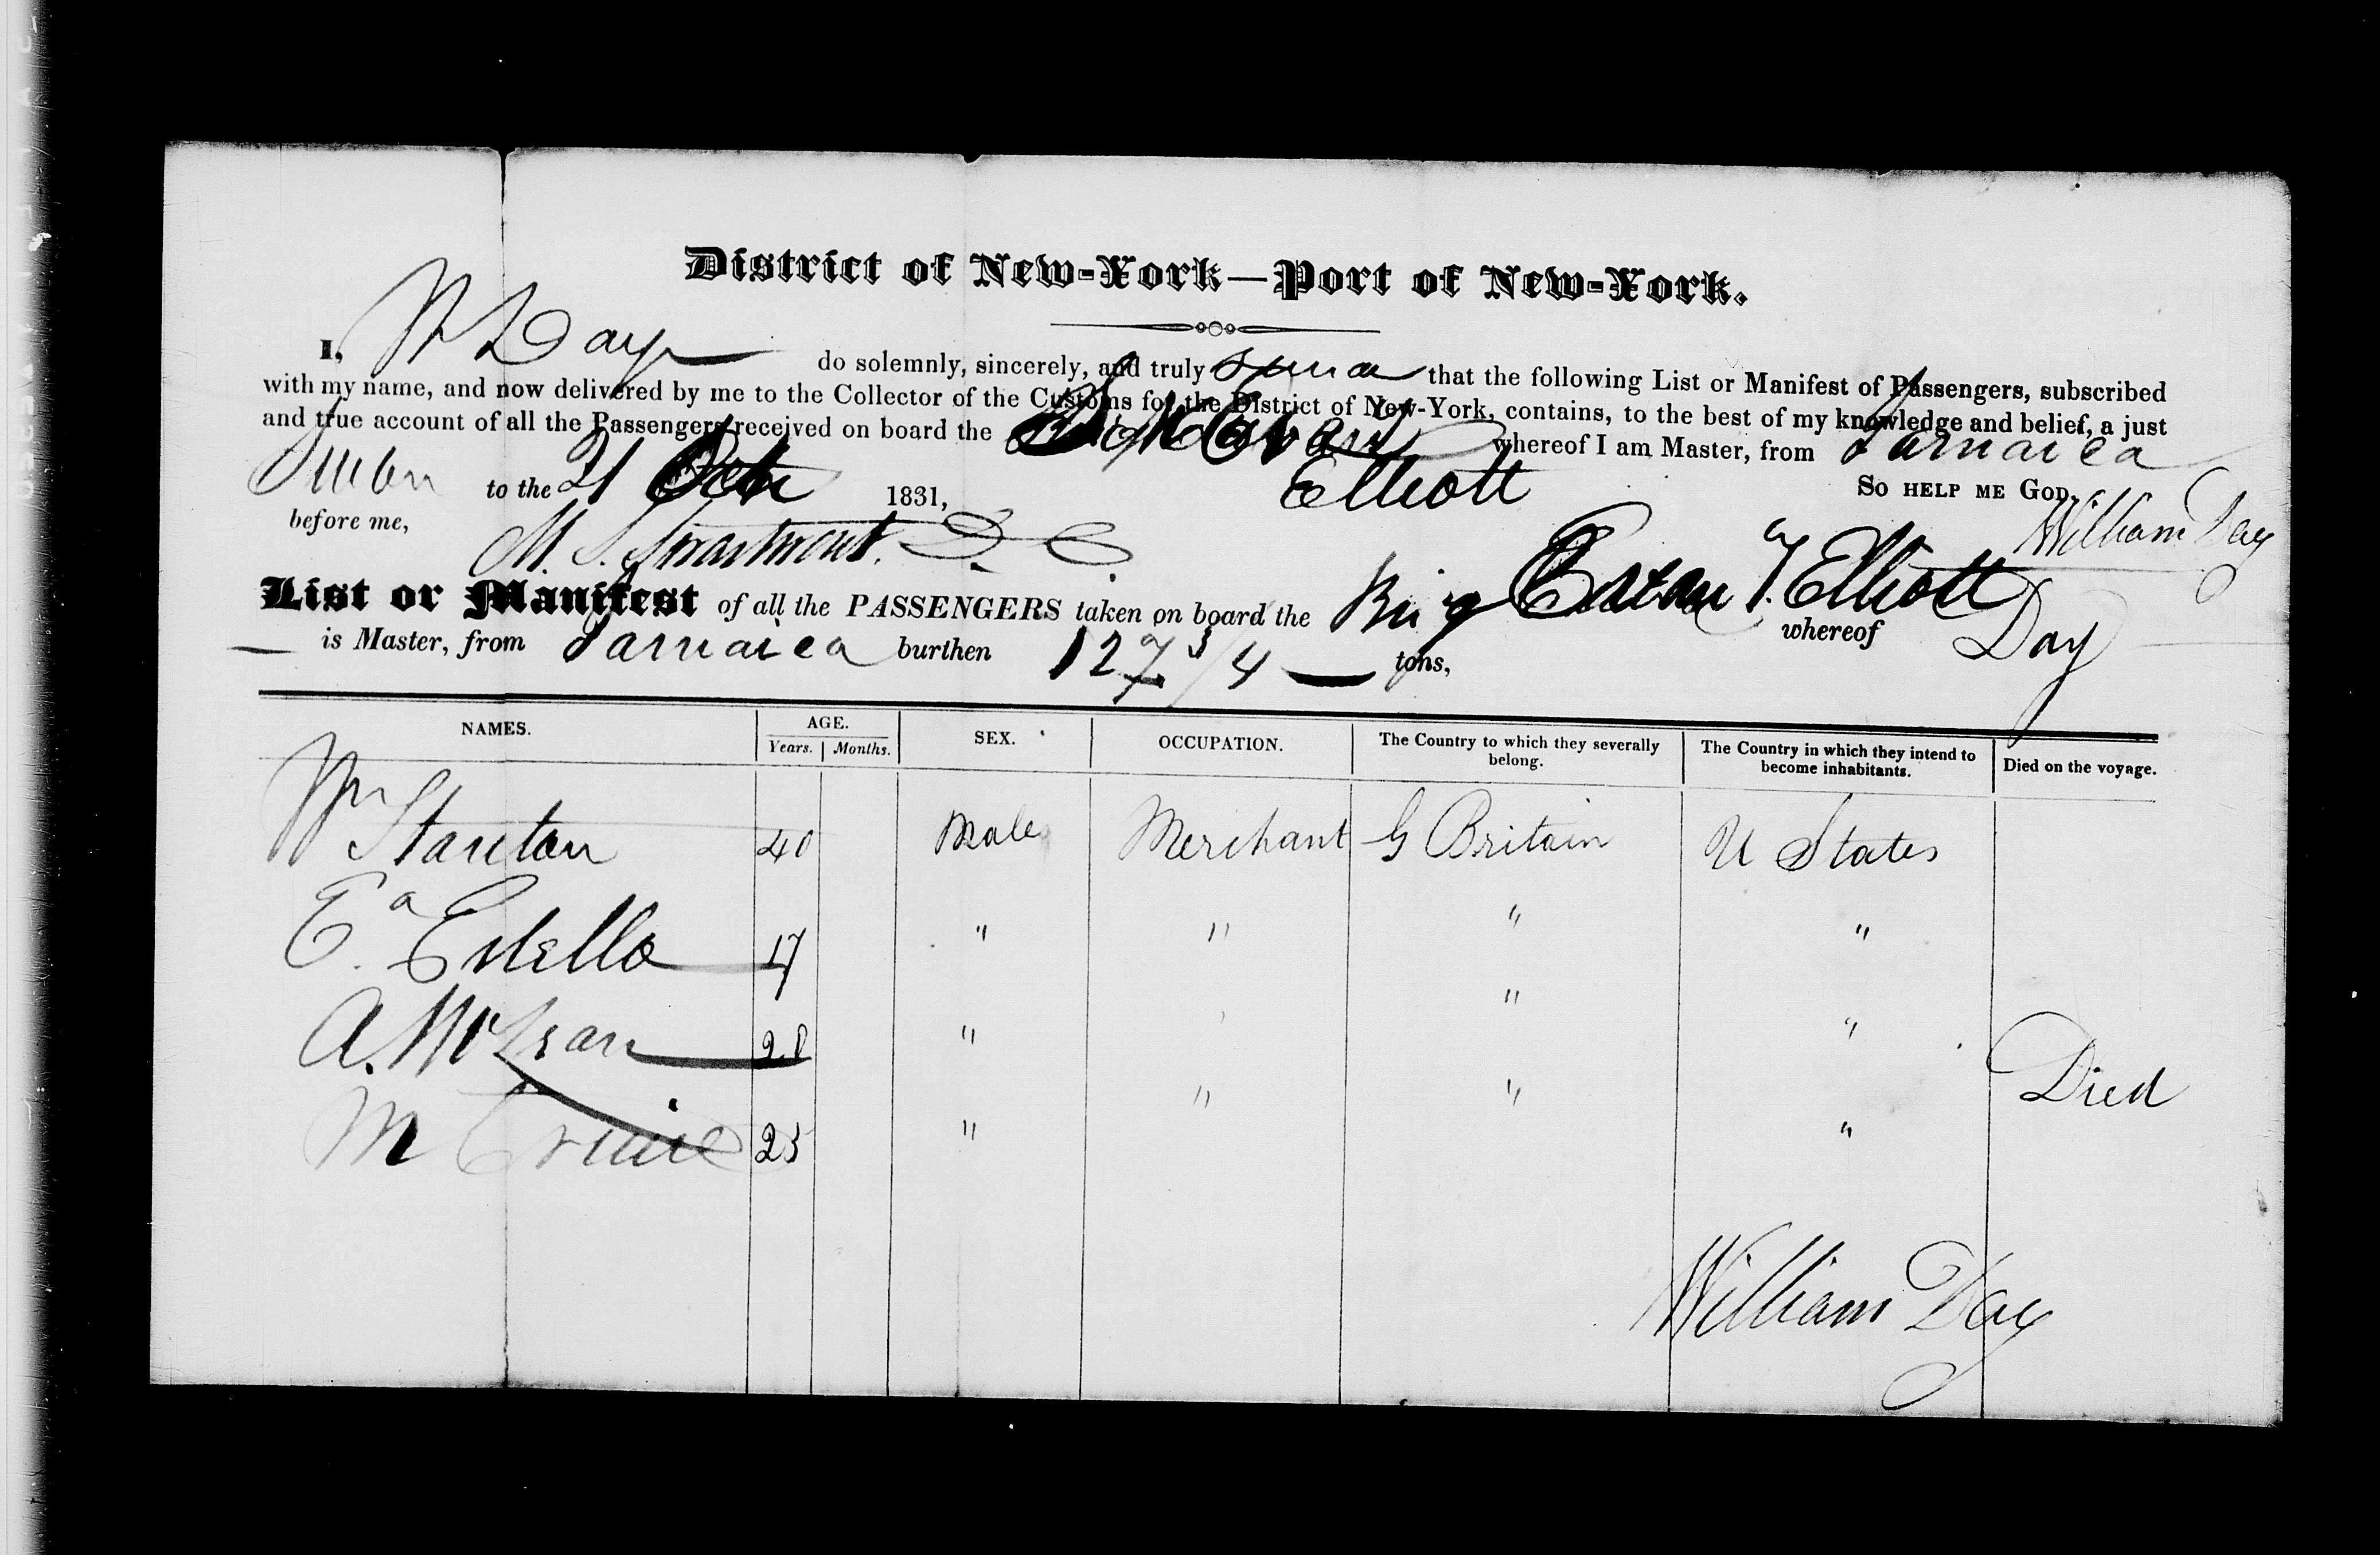 District of New-York—Port of New-York.
I, Wm Day do solemnly, sincerely, and truly swear that the following List or Manifest of Passengers, subscribed
with my name, and now delivered by me to the Collector of the Customs for the District of New-York, contains, to the best of my knowledge and belief, a just
and true account of all the Passengers received on board the whereof I am Master, from Jamaica
Elliott
Sworn to the 21 Oct 1831, So help me God.
before me, William Day
List or Manifest of all the PASSENGERS taken on board the Brig Elliott whereof Day
is Master, from Jamaica burthen 127 3/4 tons,
NAMES. AGE. Years. Months. SEX. OCCUPATION. The Country to which they severally belong. The Country in which they intend to become inhabitants. Died on the voyage.
Wm Stanton 40 Male Merchant G Britain U States
Ea Estella 17 " " " "
A. McLean 28 " " "
M 25 " " " " Died
William Day